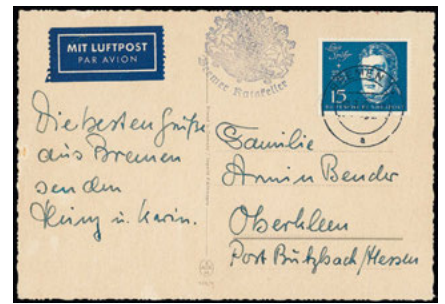 MIT LUFTPOST
PAR AVION
Bremer Ratskeller
15
Die besten Grüße
aus Bremen
senden
u. Karin.
Familie
Armin Bender
Oberkleen
Post Butzbach/Hessen